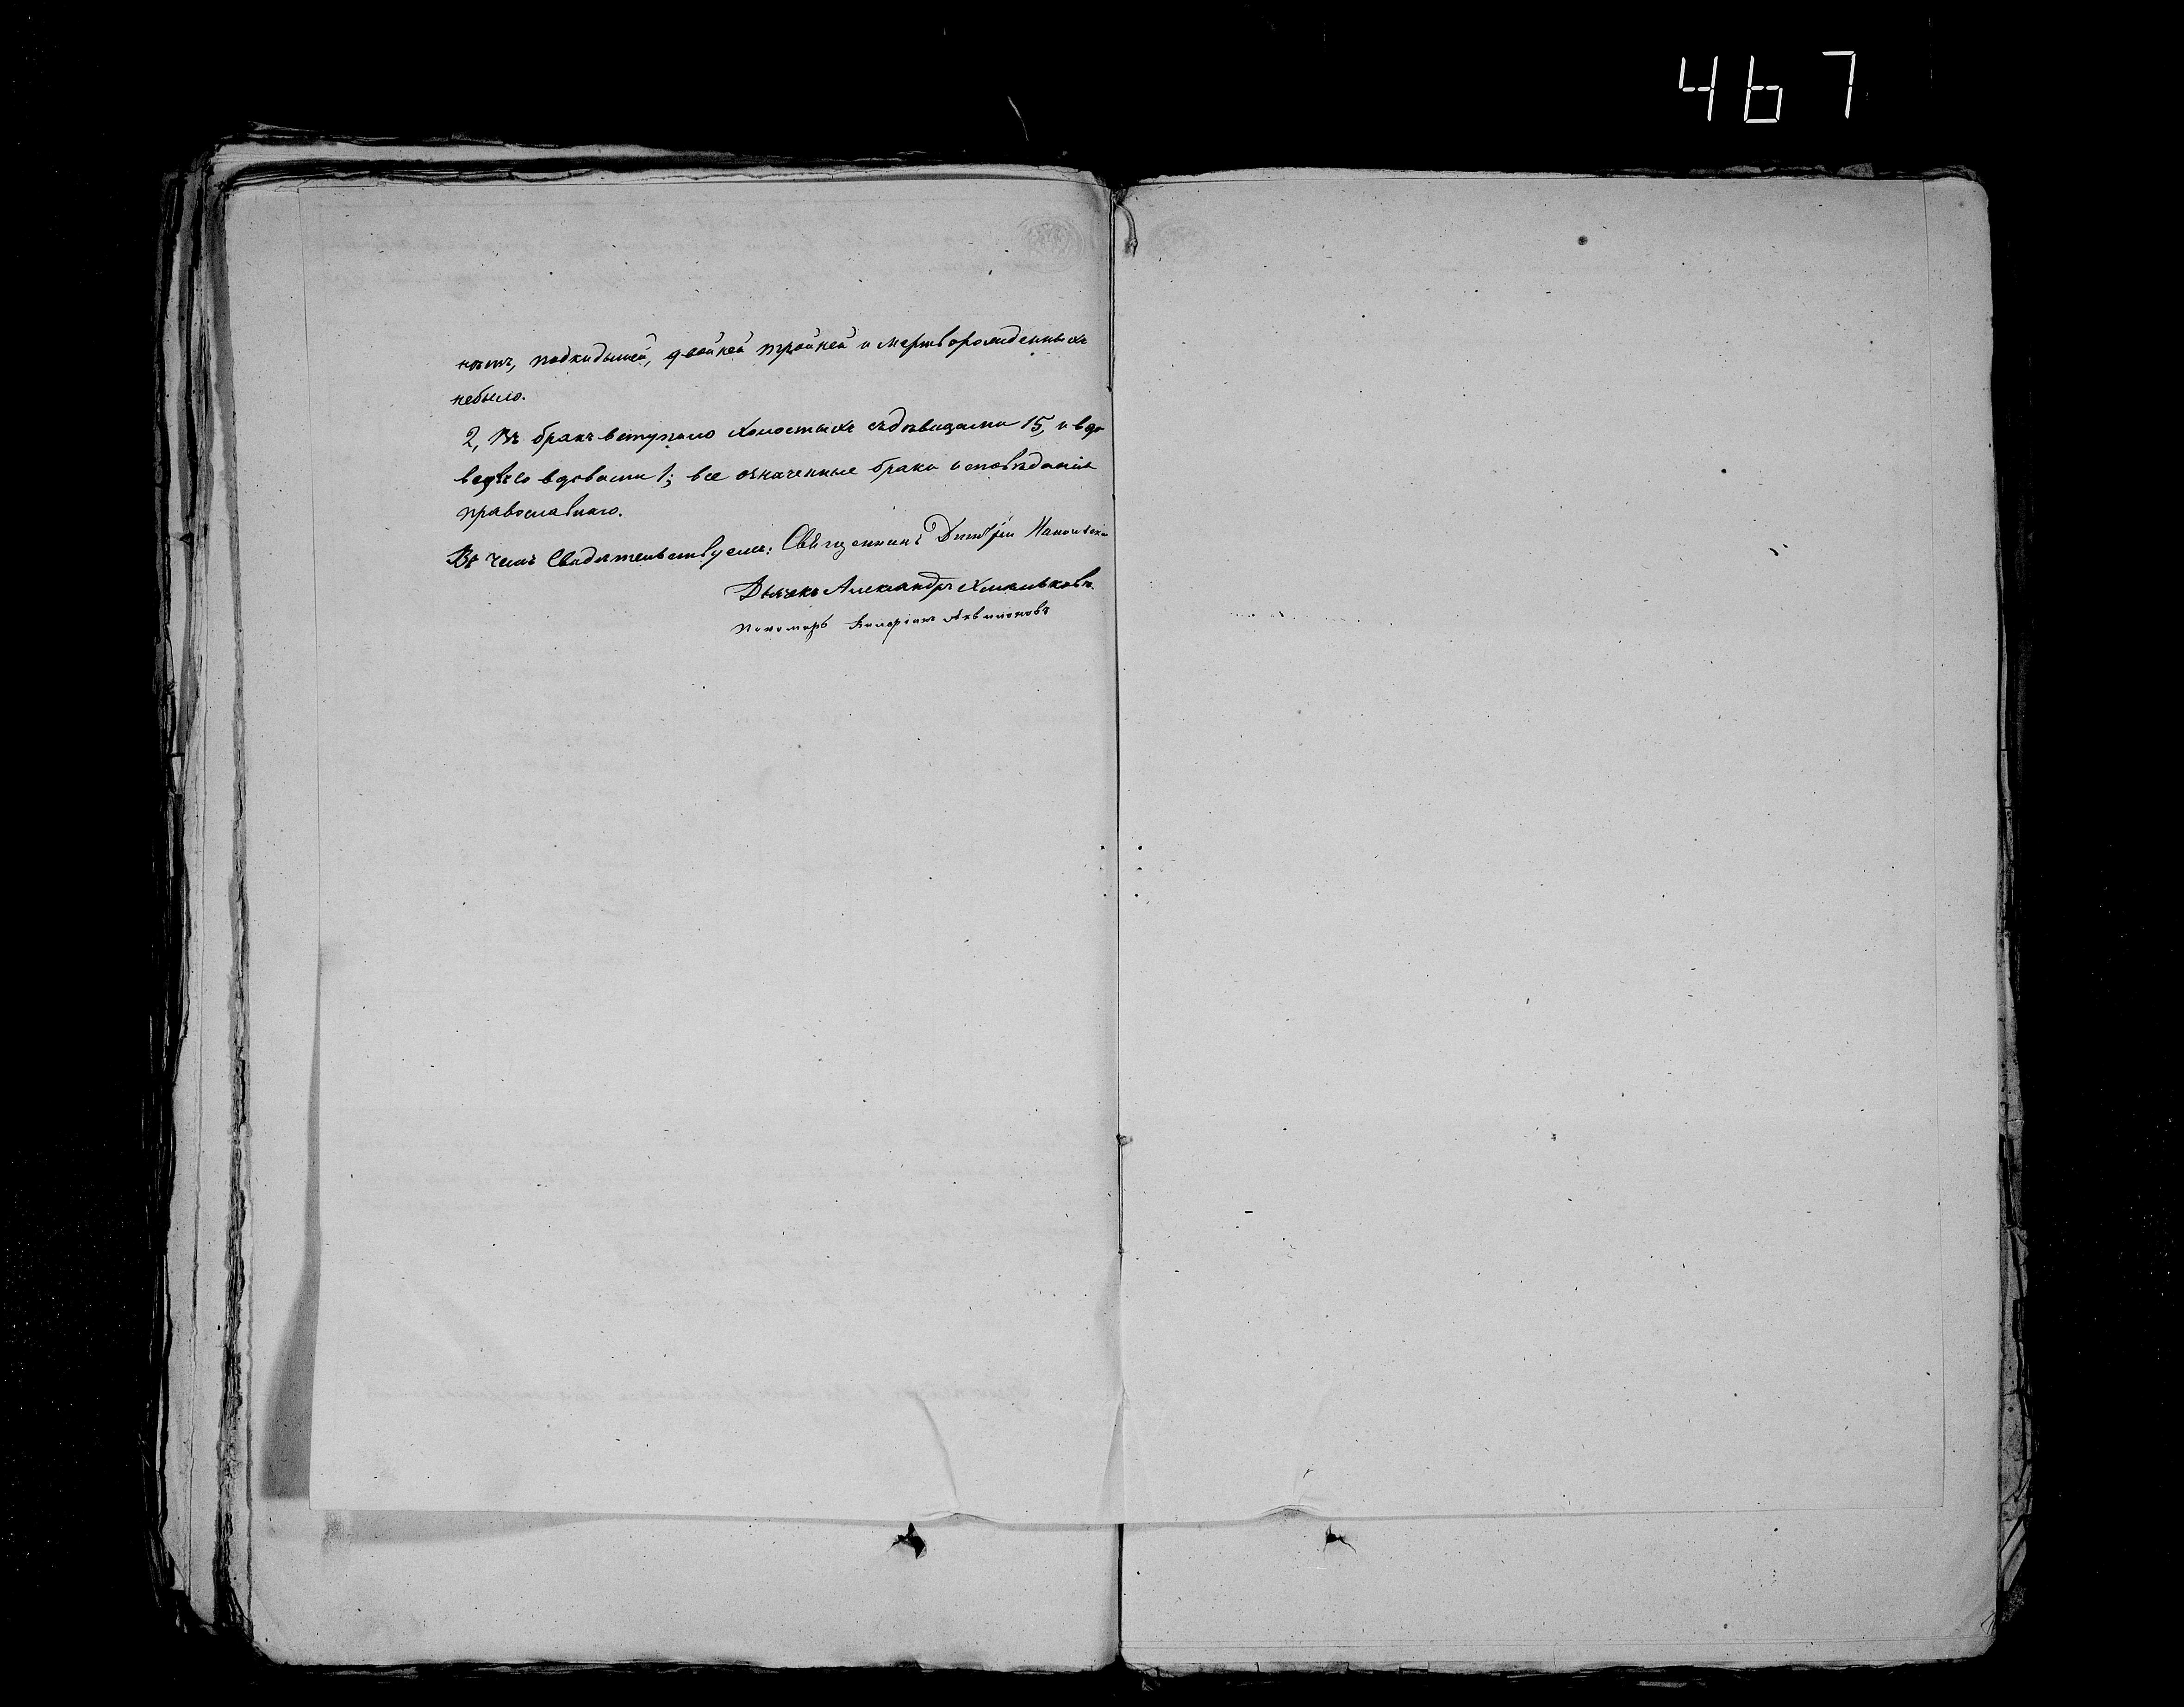 467
нетъ, подкидышей, двойней тройней и мертворожденныхъ
небыло.
2, Въ бракъ вступило холостыхъ съ дѣвицами 15, и вдо
вецъ со вдовами 1; все означенные браки исповѣданія
православнаго.
Въ чемъ Свидѣтельствуемъ: Священникъ Димитрій
Дьячекъ Александръ
Пономарь Валеріанъ Аквилоновъ